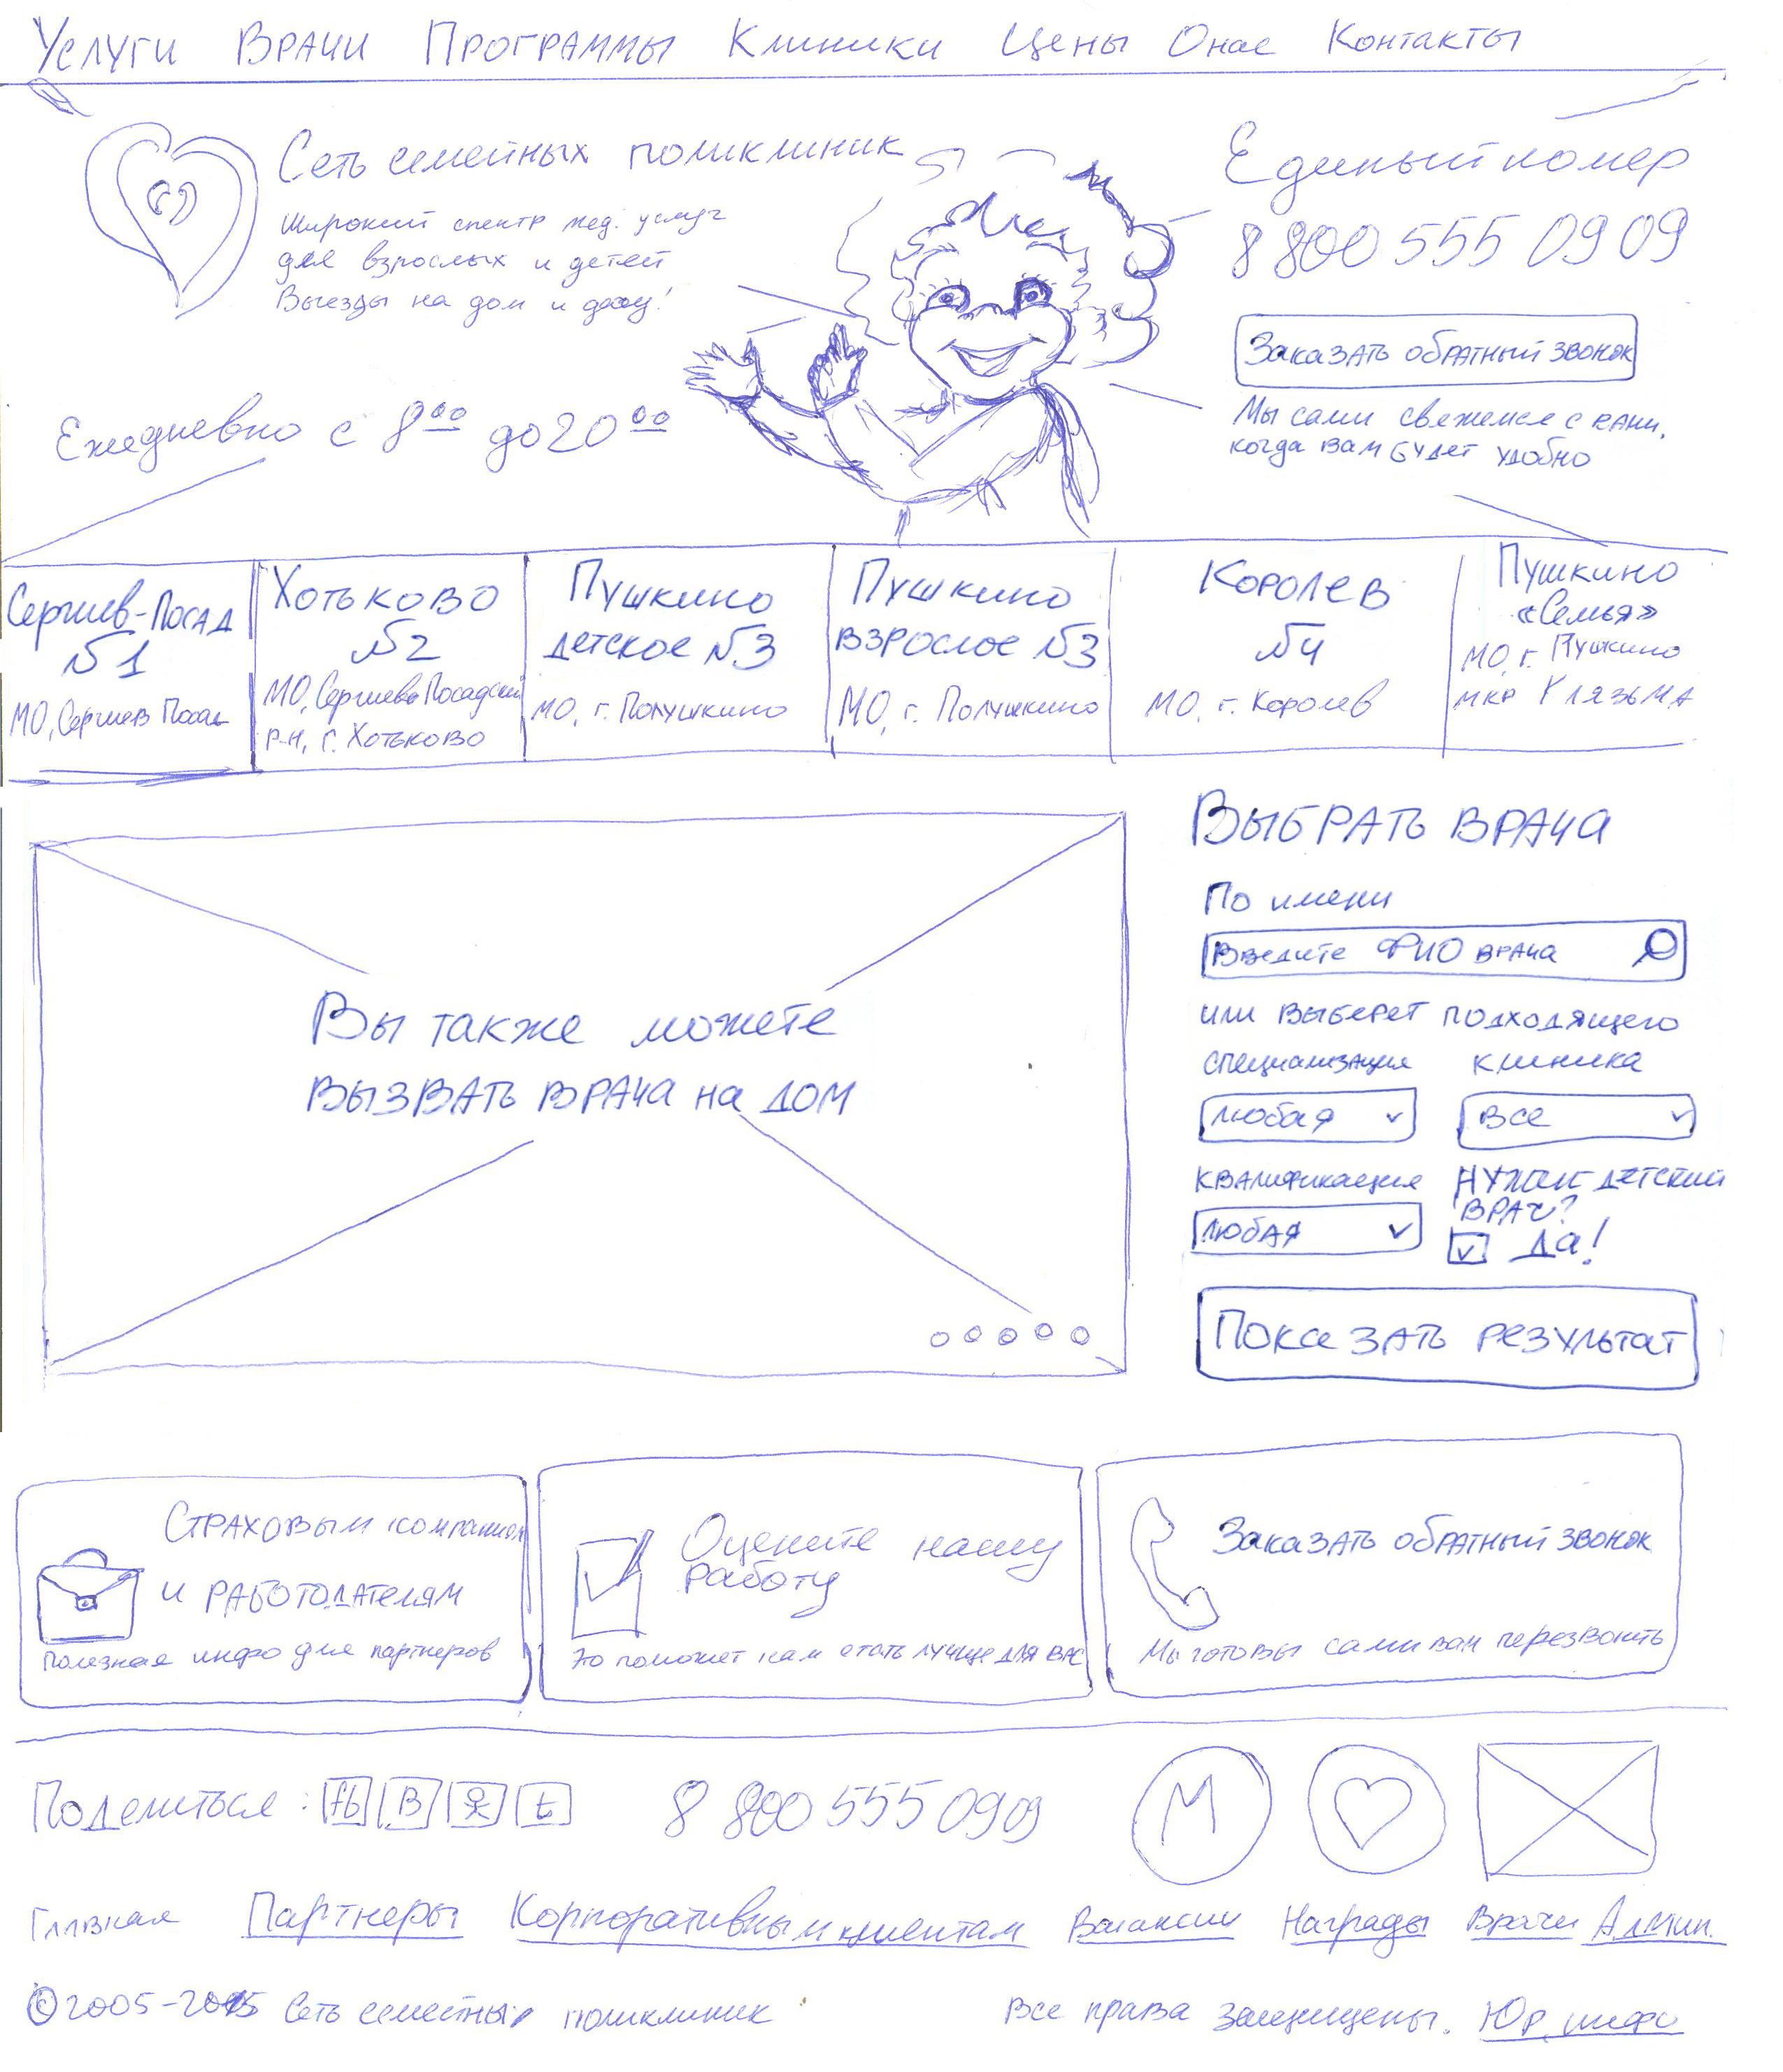 Услуги Врачи Программы Клиники Цены О нас Контакты
Сеть семейных поликлиник
Широкий спектр мед. услуг
для взрослых и детей
Выезды на дом и
Ежедневно с 8 00 до 20 00
Единый номер
8 800 555 09 09
Заказать обратный звонок
Мы сами свяжемся с вами,
когда вам будет удобно
Сергиев-Посад
№1
МО, Сергиев Посад
Хотьково
№2
МО, Сергиево Посадский
р-н, г. Хотьково
Пушкино
детское №3
МО, г. Полушкино
Пушкино
взрослое №3
МО, г. Полушкино
Королев
№4
МО, г. Королев
Пушкино
«Семья»
МО, г. Пушкино
мкр Клязьма
Вы также можете
вызвать врача на дом
Выбрать врача
По имени
Введите ФИО врача
или выберет подходящего
специализация клиника
любая все
квалификация нужен детский
врач?
любая да!
Показать результат
Страховым компаниям
и работодателям
Полезная инфо для партнеров
Оцените нашу
работу
Это поможет нам стать лучше для вас
Заказать обратный звонок
Мы готовы сами вам перезвонить
Поделиться: fb В t 8 800 555 0909 М
Главная Партнеры Корпоративным клиентам Вакансии Награды Врачи Админ.
© 2005-2015 Сеть семейных поликлиник Все права защищены. Юр. инфо